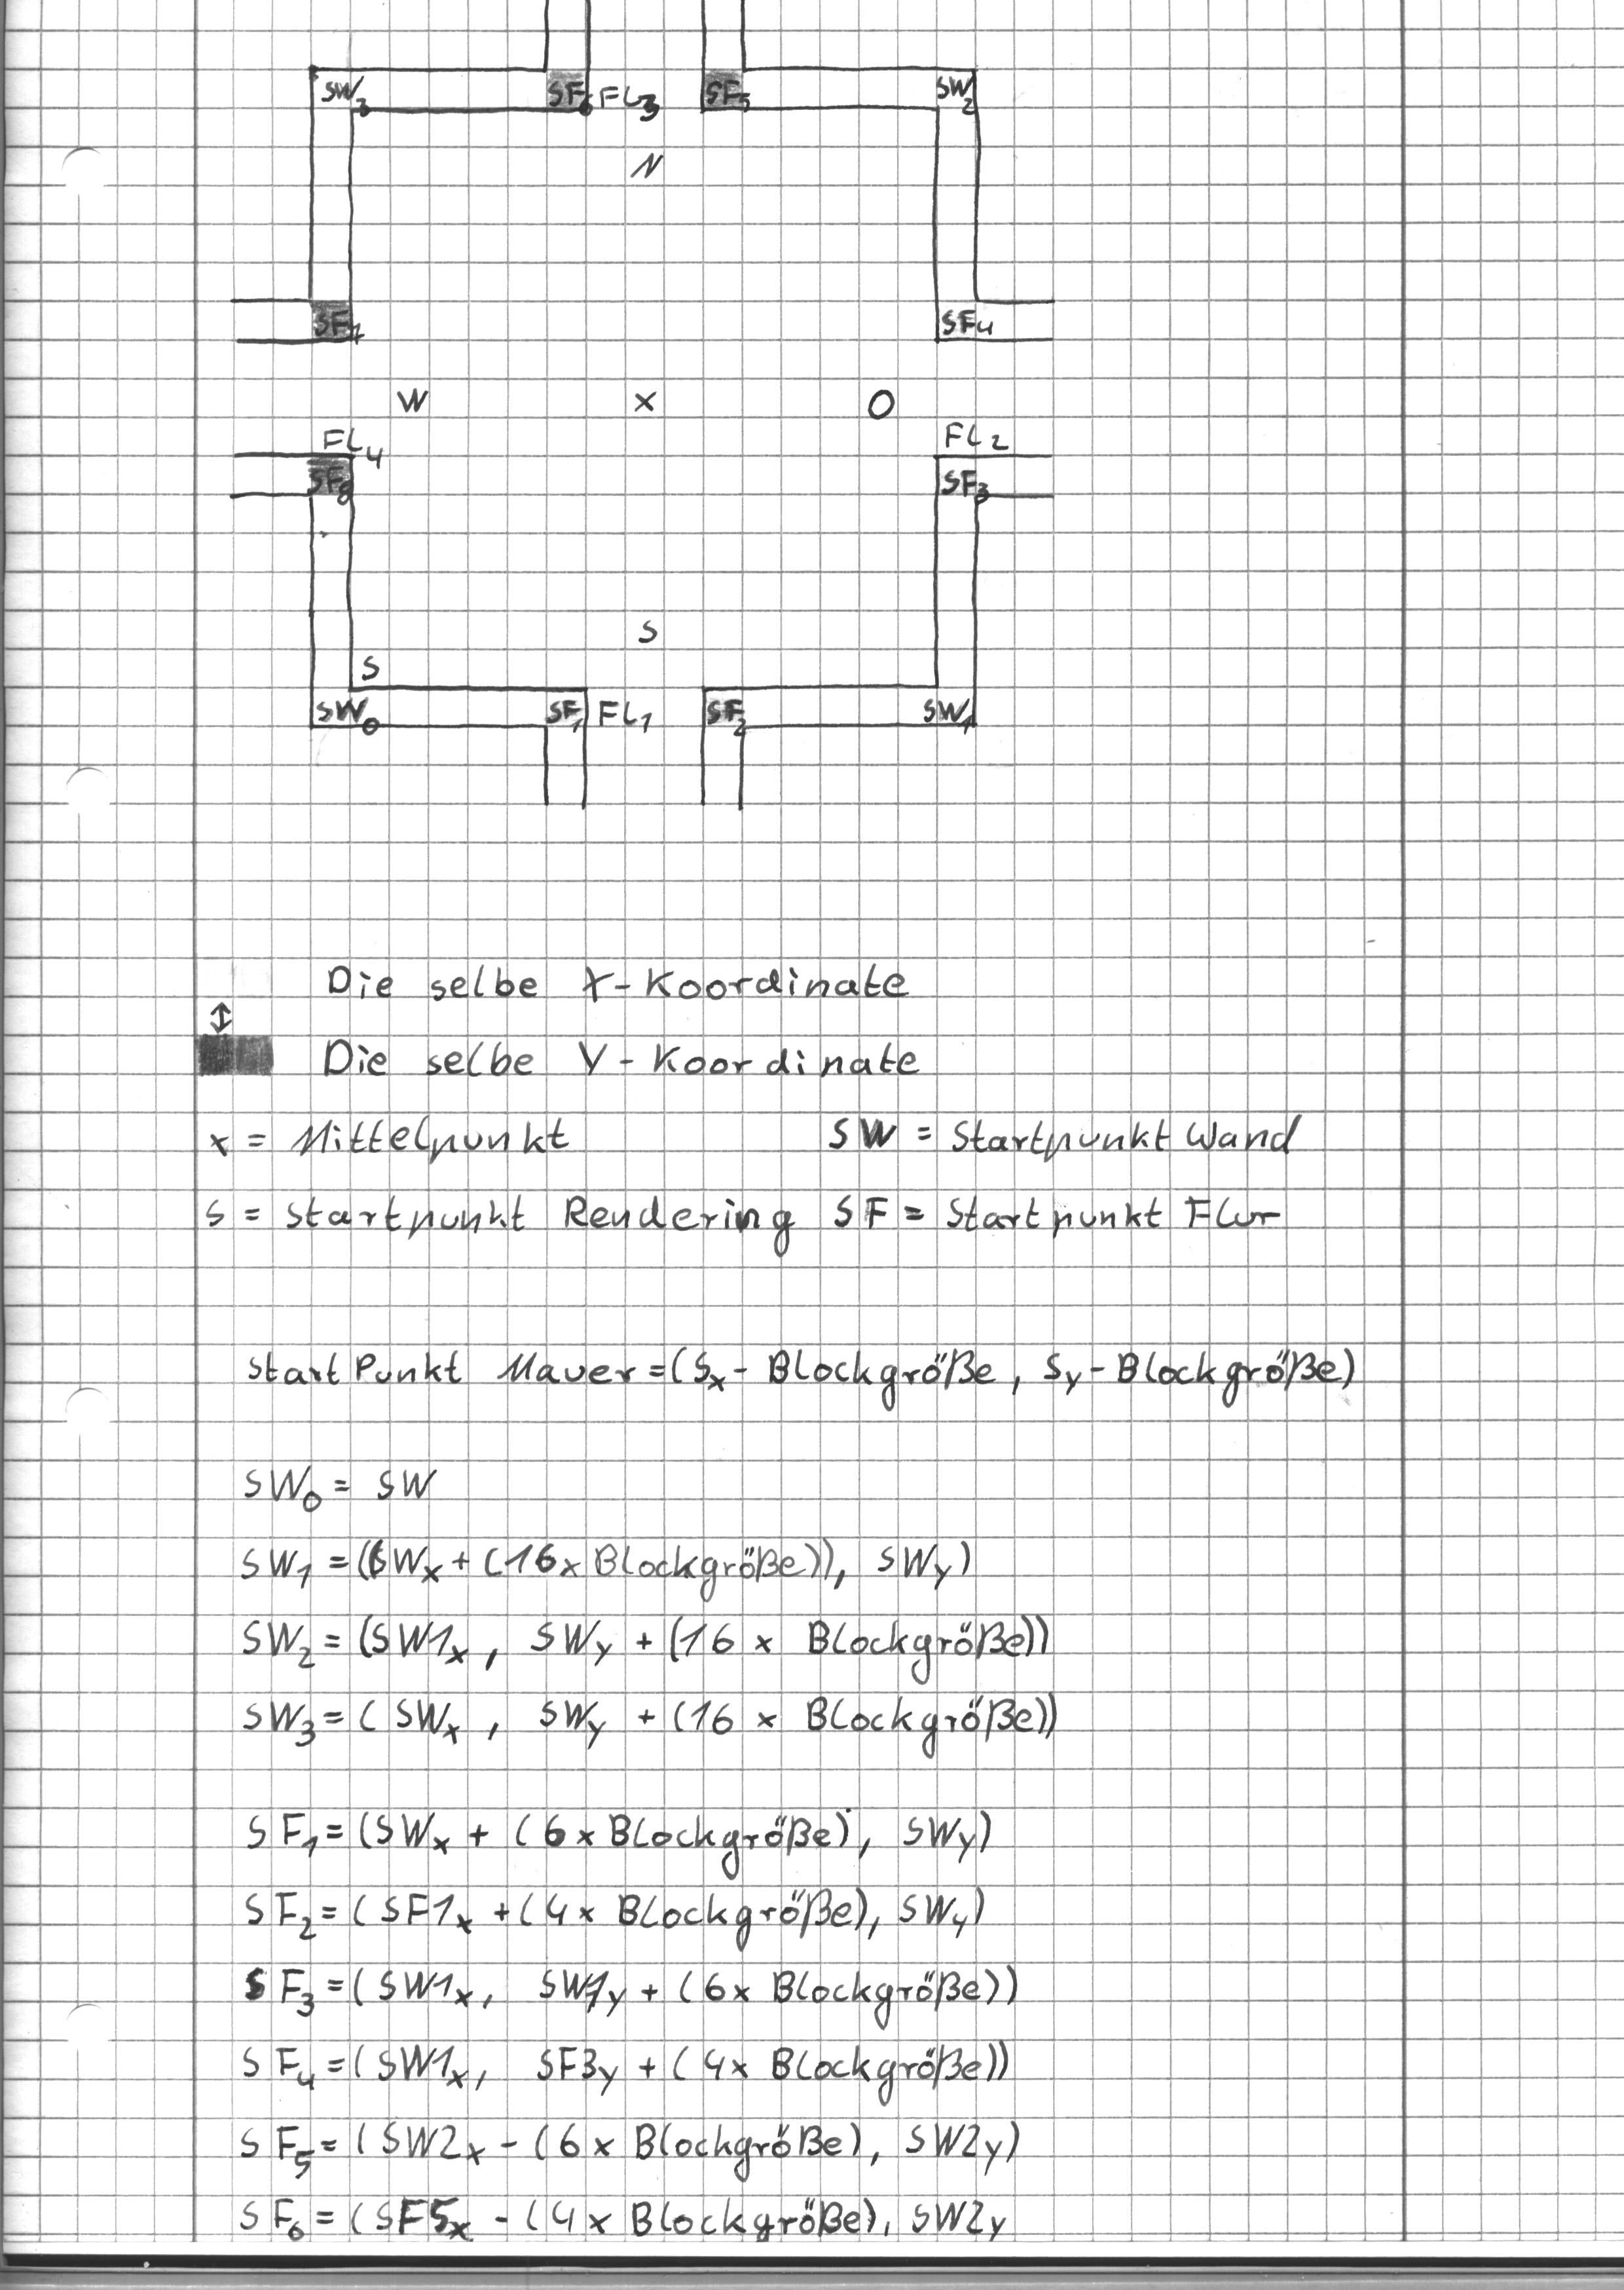 SW3 SF6 FL3 SF5 SW2
N
SF7 SF4
W x O
FL4 FL2
SF8 SF3
S
S
SW0 SF1 FL1 SF2 SW1
Die selbe X-Koordinate
↕
Die selbe Y-Koordinate
x = Mittelpunkt SW = Startpunkt Wand
S = Startpunkt Rendering SF = Startpunkt Flur
Start Punkt Mauer = (Sx - Blockgröße, Sy - Blockgröße)
SW0 = SW
SW1 = (SWx + (16 x Blockgröße)), SWy)
SW2 = (SW1x, SWy + (16 x Blockgröße))
SW3 = (SWx, SWy + (16 x Blockgröße))
SF1 = (SWx + (6 x Blockgröße), SWy)
SF2 = (SF1x + (4 x Blockgröße), SWy)
SF3 = (SW1x, SW1y + (6 x Blockgröße))
SF4 = (SW1x, SF3y + (4 x Blockgröße))
SF5 = (SW2x - (6 x Blockgröße), SW2y)
SF6 = (SF5x - (4 x Blockgröße), SW2y